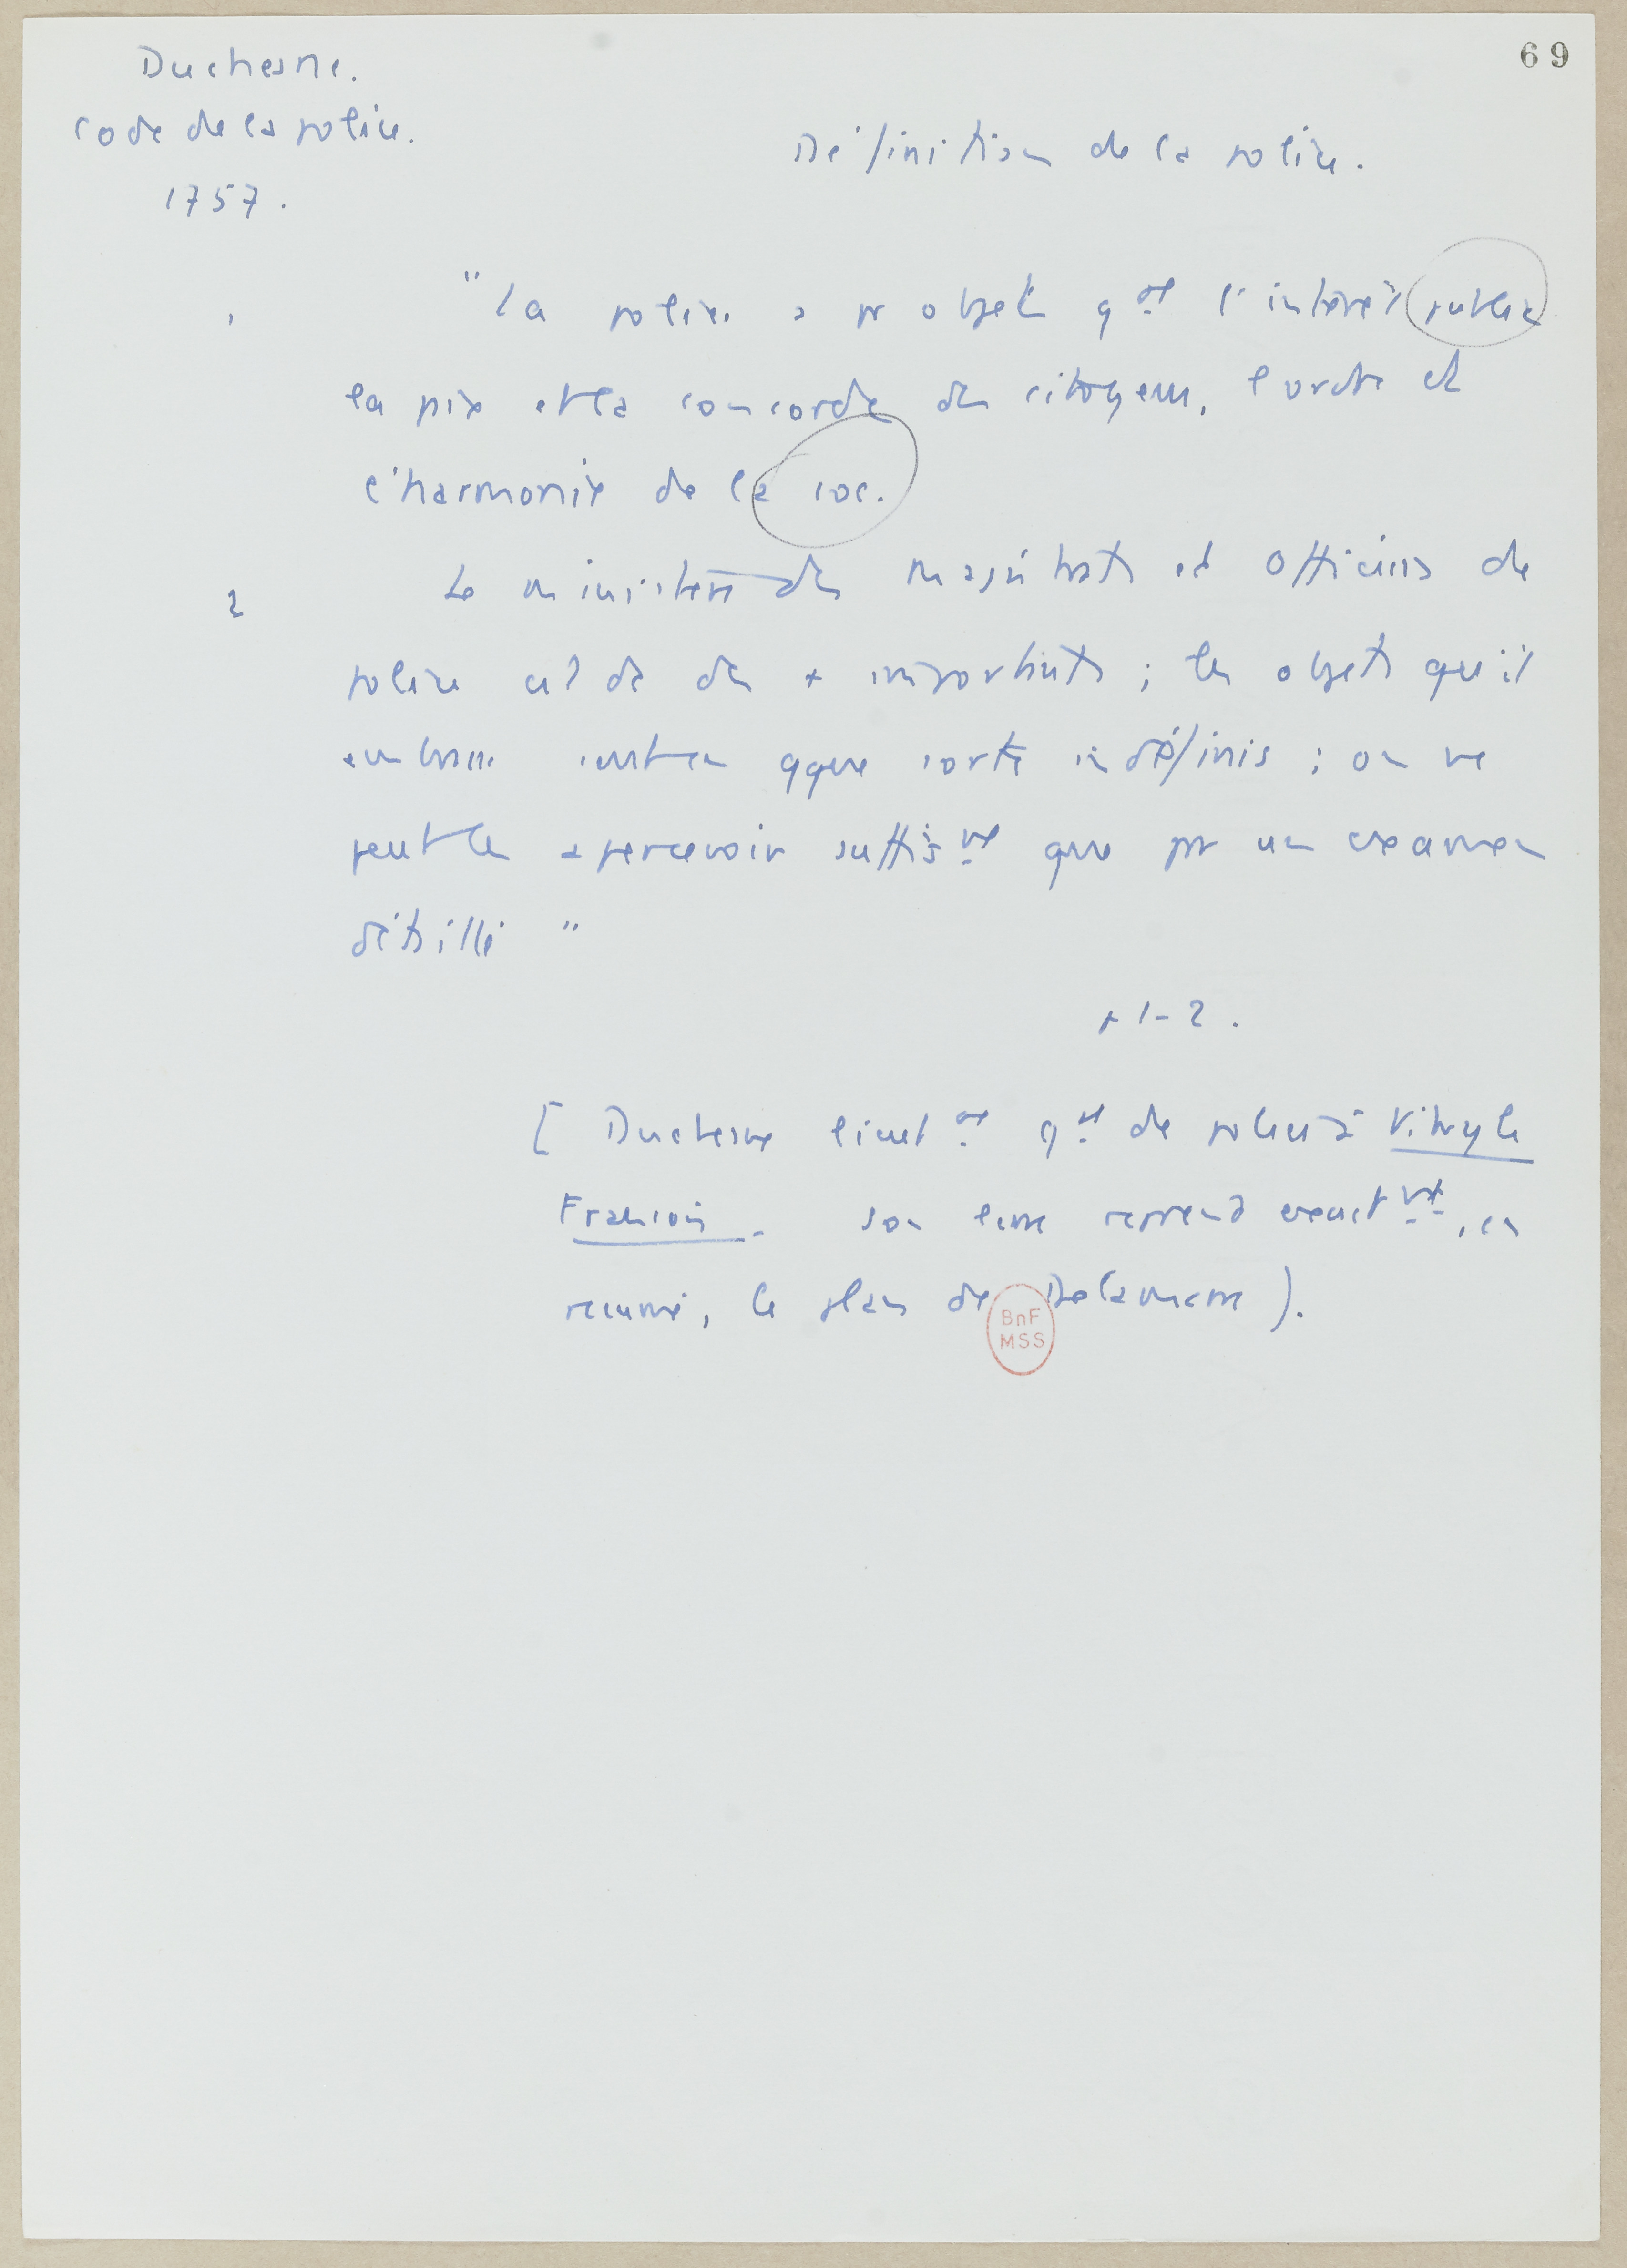 69
Duchesne.
Code de la police.
1757.
Définition de la police.
1 "La police a pr objet gal l'intérêt public
la paix et la concorde des citoyens, l'ordre et
l'harmonie de la soc.
2 Le ministère des magistrats et officiers de
police est de des + importants ; les objets qu'il
embrasse sont en qque sorte indéfinis ; on ne
peut les apercevoir suffismt que par un examen
détaillé "
p 1-2.
[ Duchesne lieutnt gal de police à Vitry le
François. son livre reprend exactmt, en
résumé, le plan de Delamare ).
BnF
MSS